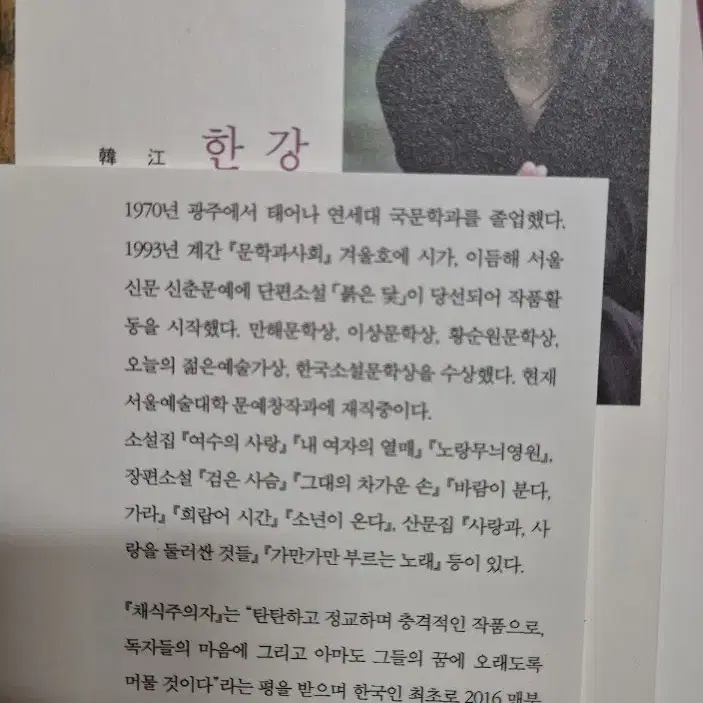 韓 江 한 강
1970년 광주에서 태어나 연세대 국문학과를 졸업했다.
1993년 계간 『문학과사회』 겨울호에 시가, 이듬해 서울
신문 신춘문예에 단편소설 「붉은 닻」이 당선되어 작품활
동을 시작했다. 만해문학상, 이상문학상, 황순원문학상,
오늘의 젊은예술가상, 한국소설문학상을 수상했다. 현재
서울예술대학 문예창작과에 재직중이다.
소설집 『여수의 사랑』 『내 여자의 열매』 『노랑무늬영원』,
장편소설 『검은 사슴』 『그대의 차가운 손』 『바람이 분다,
가라』 『희랍어 시간』 『소년이 온다』, 산문집 『사랑과, 사
랑을 둘러싼 것들』 『가만가만 부르는 노래』 등이 있다.
『채식주의자』는 “탄탄하고 정교하며 충격적인 작품으로,
독자들의 마음에 그리고 아마도 그들의 꿈에 오래도록
머물 것이다”라는 평을 받으며 한국인 최초로 2016 맨부